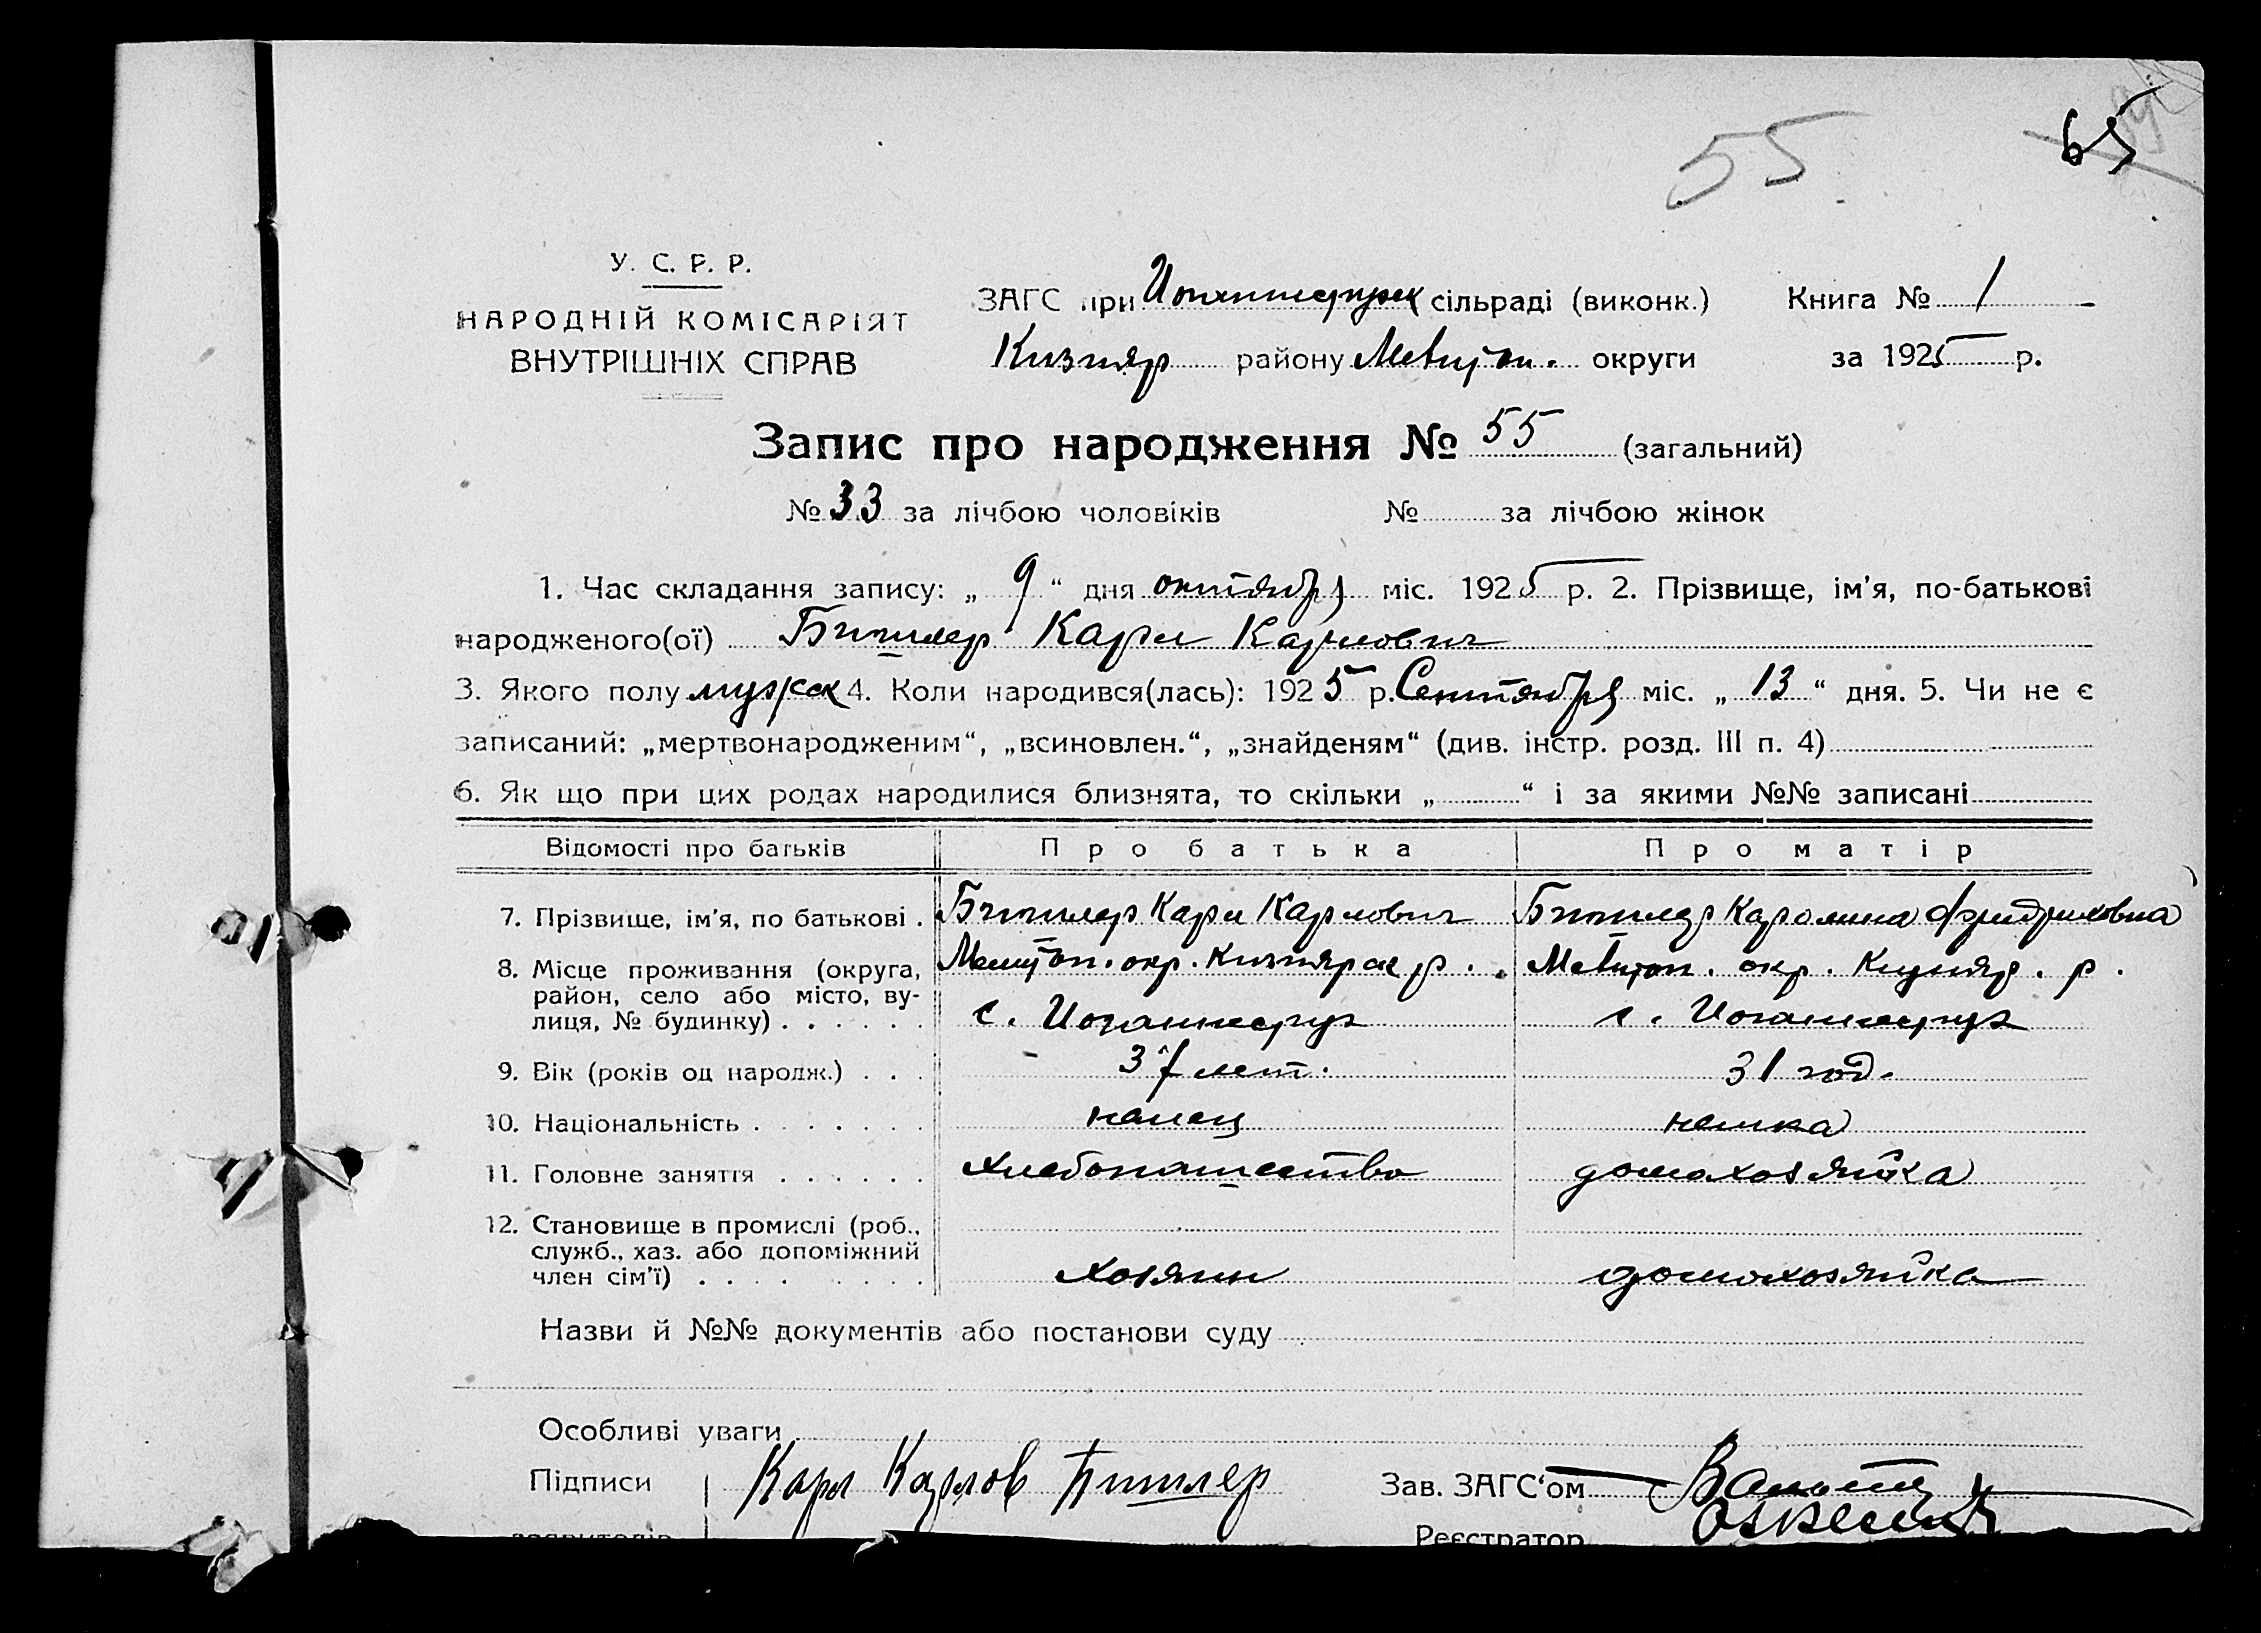 65
55
У. С. Р. Р.
НАРОДНІЙ КОМІСАРІЯТ
ВНУТРІШНІХ СПРАВ
ЗАГС при сільраді (виконк.) Книга № 1
Кизияр району Мелитоп. округи за 1925 р.
Запис про народження № 55 (загальний)
№ 33 за лічбою чоловіків № за лічбою жінок
1. Час складання запису: „ 9 “ дня октября міс. 1925 р. 2. Прізвище, ім'я, по-батькові
народженого(ої) Карл Карлович
3. Якого полу мужск 4. Коли народився(лась): 1925 р. Сентября міс. „ 13 “ дня. 5. Чи не є
записаний: „мертвонародженим“, „всиновлен.“, „знайденям“ (див. інстр. розд. III п. 4)
6. Як що при цих родах народилися близнята, то скільки „ “ і за якими №№ записані
Відомості про батьків Про батька Про матір
7. Прізвище, ім'я, по батькові . Карл Карлович Каролина Фридриховна
8. Місце проживання (округа, Мелитоп. окр. Кизиярск р. Мелитоп. окр. Кизияр. р.
район, село або місто, ву-
лиця, № будинку) . . . . . . с. Иоганнесрух с. Иоганнесрух
9. Вік (років од народж.) . . . 37 лет. 31 год.
10. Національність . . . . . . . немец немка
11. Головне заняття . . . . . . хлебопашество домохозяйка
12. Становище в промислі (роб.,
служб., хаз. або допоміжний
член сім'ї) . . . . . . . . хозяин домохозяйка
Назви й №№ документів або постанови суду
Особливі уваги
Підписи Карл Карлов Зав. ЗАГС'ом
Реєстратор